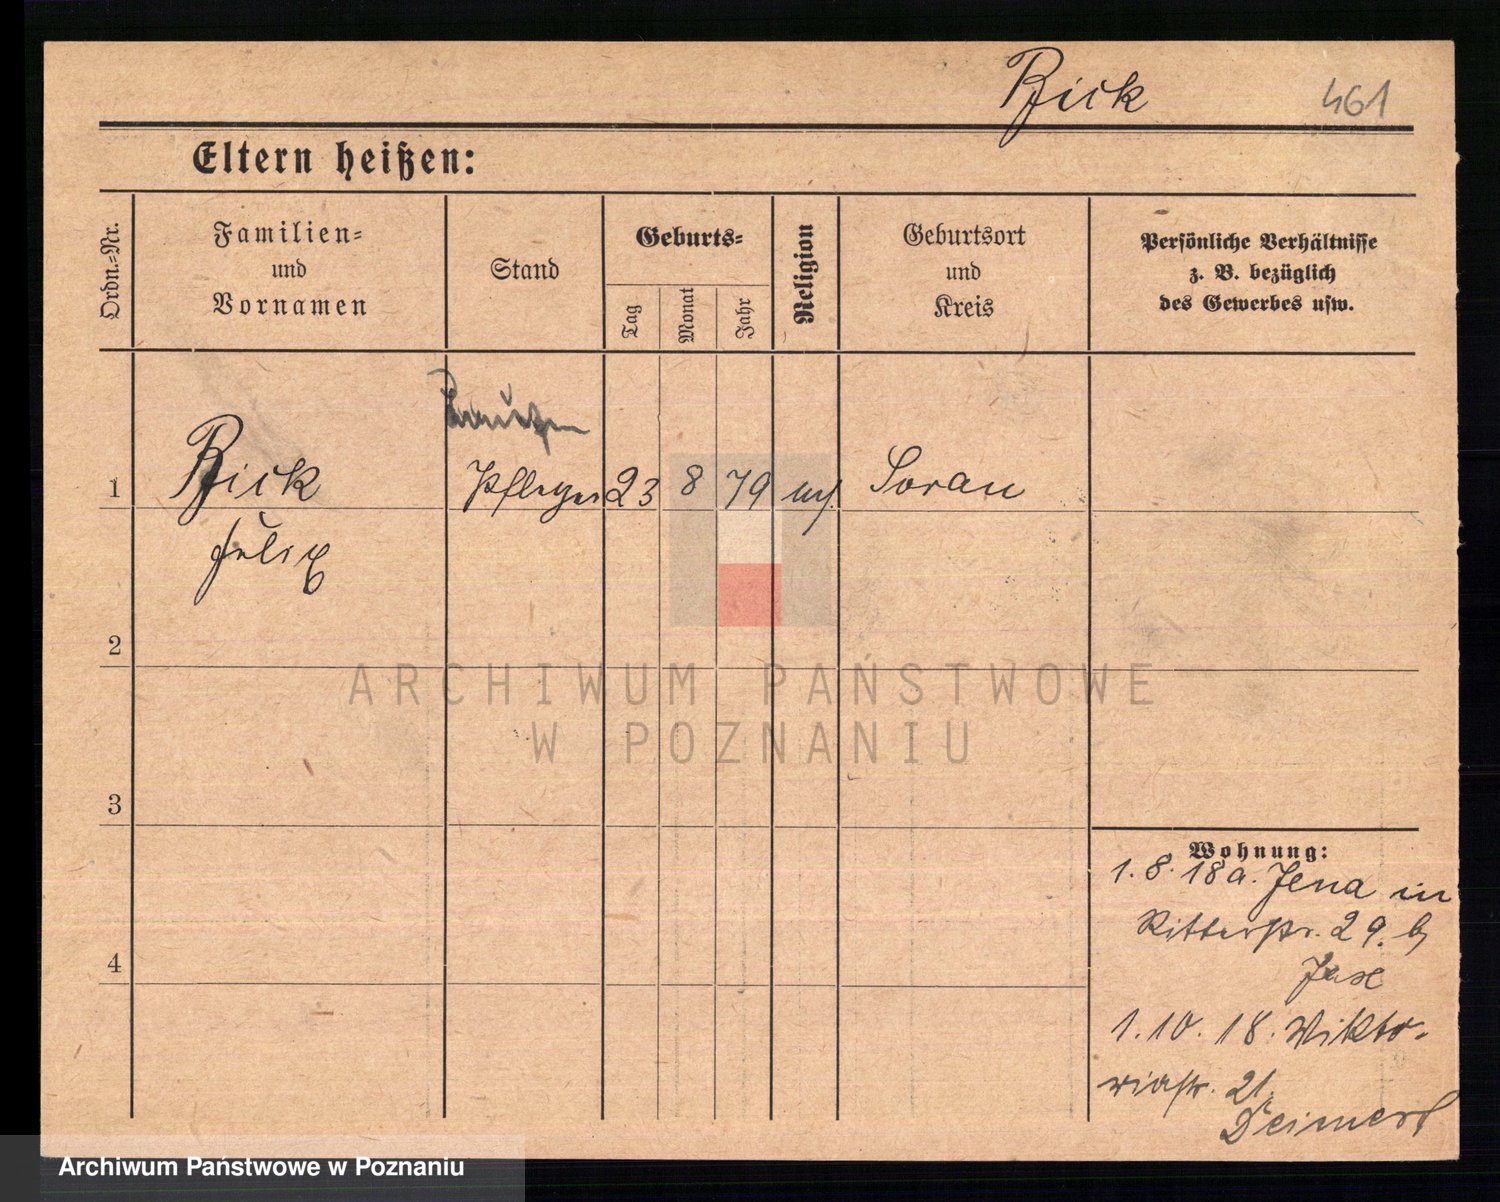 Rick
461
Eltern heißen:
Ordn.-Nr.
Familien-
und
Vornamen
Stand
Geburts-
Tag
Monat
Jahr
Religion
Geburtsort
und
Kreis
Persönliche Verhältnisse
z. B. bezüglich
des Gewerbes usw.
1
Pfleger
23
8
79
Soran
Felix
2
3
4
ARCHIWUM PAŃSTWOWE
W POZNANIU
Wohnung:
1. 8. 18 a. Jena in
Ritterstr. 29. b
1. 10. 18. Vikto-
riastr. 21.
Archiwum Państwowe w Poznaniu